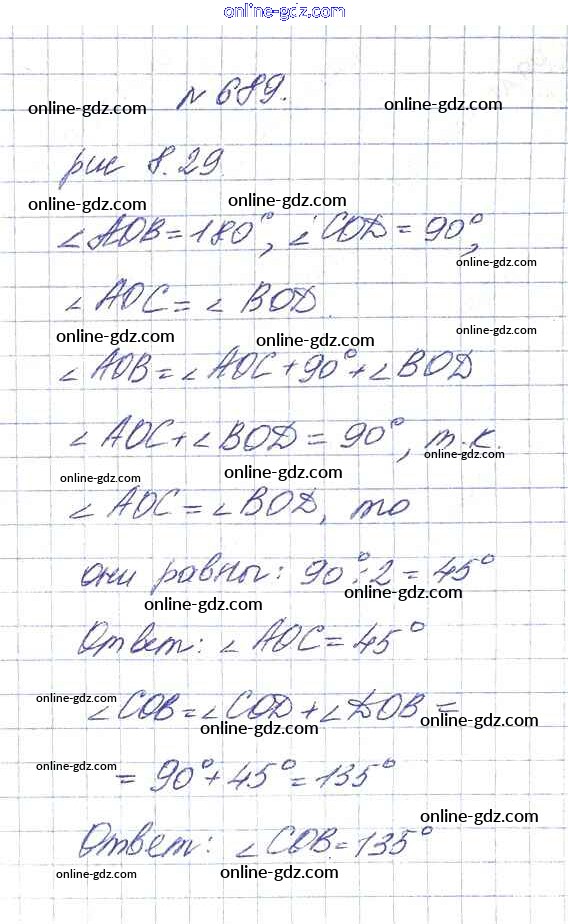 online-gdz.com
№ 689.
online-gdz.com online-gdz.com
рис 8.29
online-gdz.com online-gdz.com
∠AOB = 180°, ∠COD = 90°,
online-gdz.com
∠AOC = ∠BOD.
online-gdz.com online-gdz.com online-gdz.com
∠AOB = ∠AOC + 90° + ∠BOD
∠AOC + ∠BOD = 90°, т.к.
online-gdz.com online-gdz.com online-gdz.com
∠AOC = ∠BOD, то
они равны: 90° : 2 = 45°
online-gdz.com online-gdz.com
Ответ: ∠AOC = 45°
online-gdz.com
∠COB = ∠COD + ∠DOB =
online-gdz.com online-gdz.com
online-gdz.com
= 90° + 45° = 135°
online-gdz.com
Ответ: ∠COB = 135°
online-gdz.com online-gdz.com